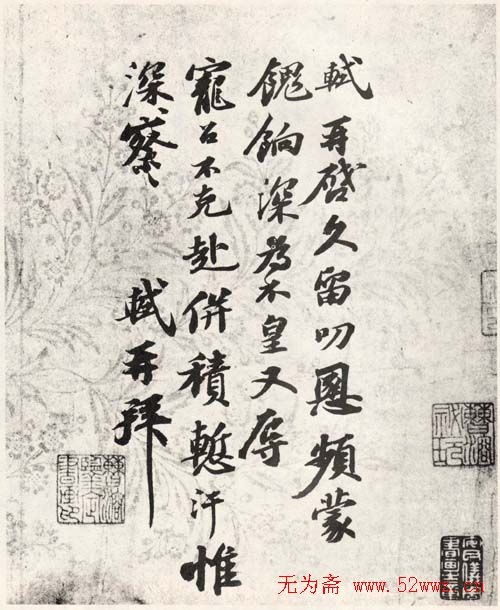 軾再啓久留叨恩頻蒙
餽餉深為不皇又辱
寵召不克赴併積慙汗惟
深〻察〻 軾再拜
曹溶秘玩
无为斋 www.52wwz.cn